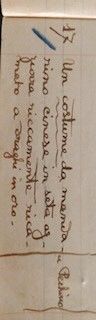 17 Un costume da manda
rino cinese in seta az
zurra riccamente rica
mato a draghi in oro -